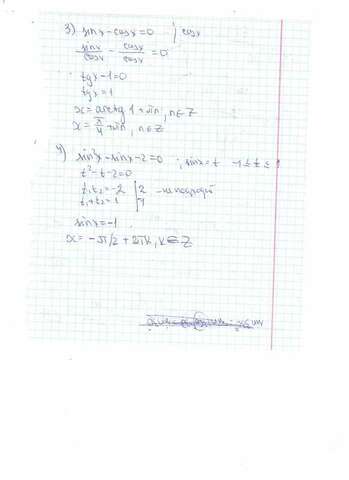 3) sinx - cosx = 0 | cosx
sinx/cosx - cosx/cosx = 0
tgx - 1 = 0
tgx = 1
x = arctg 1 + πn, n∈Z
x = π/4 + πn, n∈Z
4) sin²x - sinx - 2 = 0 ; sinx = t -1 ≤ t ≤ 1
t² - t - 2 = 0
t₁t₂ = -2 | 2 - не подходит
t₁ + t₂ = 1 | -1
sinx = -1
x = -π/2 + 2πk, k∈Z